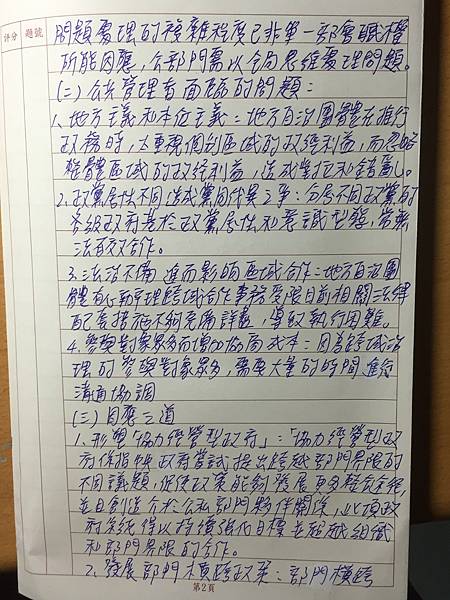 評分 題號
問題處理的複雜程度已非單一部會職權
所能因應，各部門需以全局思維處理問題。
(二)公共管理者面臨的問題：
1、地方主義和本位主義：地方自治團體在推行
政務時，太重視個別區域的政經利益，而忽略
整體區域的政經利益，造成掌控和錯亂。
2、政黨屬性不同造成黨同伐異之爭：分屬不同政黨的
各級政府基於政黨屬性和意識型態，常無
法有效合作。
3、法治不備進而影響區域合作：地方自治團
體有心辦理跨域合作事務受限目前相關法律
配套措施不夠完備詳盡，導致執行困難。
4、參與對象眾多而增加協商成本：因為跨域治
理的參與對象眾多，需要大量的時間進行
溝通協調
(三)因應之道
1、形塑「協力經營型政府」：「協力經營型政
府係指的政府嘗試提出跨越部門界限的
不同議題，促使政策能夠發展更多整合途徑，
並且創造介於公私部門夥伴關係，此項政
府系統得以持續強化目標並超越組織
和部門界限的合作。
2、發展部門橫跨政策：部門橫跨
第2頁